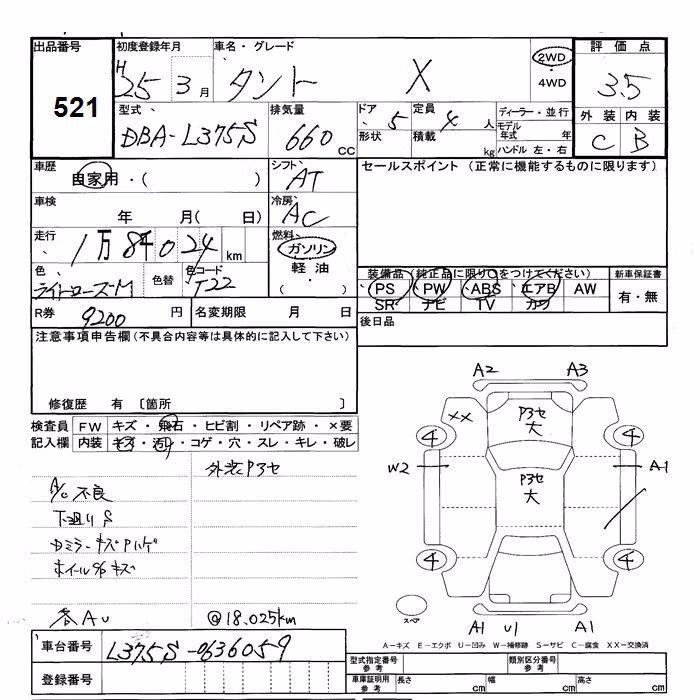 出品番号 初度登録年月 車名・グレード 2WD 評価点
521 H 25 3月 タント X ・4WD 3.5
型式 排気量 ドア 定員 ディーラー・並行 外装 内装
DBA-L375S 660 CC 5 4人 モデル年式 年 C B
形状 積載 kg ハンドル 左・右
車歴 自家用・( ) シフト AT セールスポイント (正常に機能するものに限ります)
車検 年 月( 日) 冷房 AC
走行 1万8千024km 燃料 ガソリン
軽油
・( )
色 ライトローズM 色替 色コード T22 装備品 (純正品に限り○をつけてください) 新車保証書
PS PW ABS エアB AW 有・無
SR ナビ TV カワ
R券 9200円 名変期限 月 日 後日品
注意事項申告欄(不具合内容等は具体的に記入して下さい)
修復歴 有 〔箇所 〕
検査員 FW キズ・飛石・ヒビ割・リペア跡・×要
記入欄 内装 キズ・汚レ・コゲ・穴・スレ・キレ・破レ
外装P3セ
A/C不良
下廻りS
ホイールキズ
各AU @18.025km
A2 A3
XX P3セ
大
4 4
W2 P3セ A1
大
4 4
スペア A1 U1 A1
A-キズ E-エクボ U-凹み W-補修跡 S-サビ C-腐食 XX-交換済
車台番号 L375S-0636059
登録番号
型式指定番号 参考 類別区分番号 参考
車庫証明用 参考 長さ cm 幅 cm 高さ cm